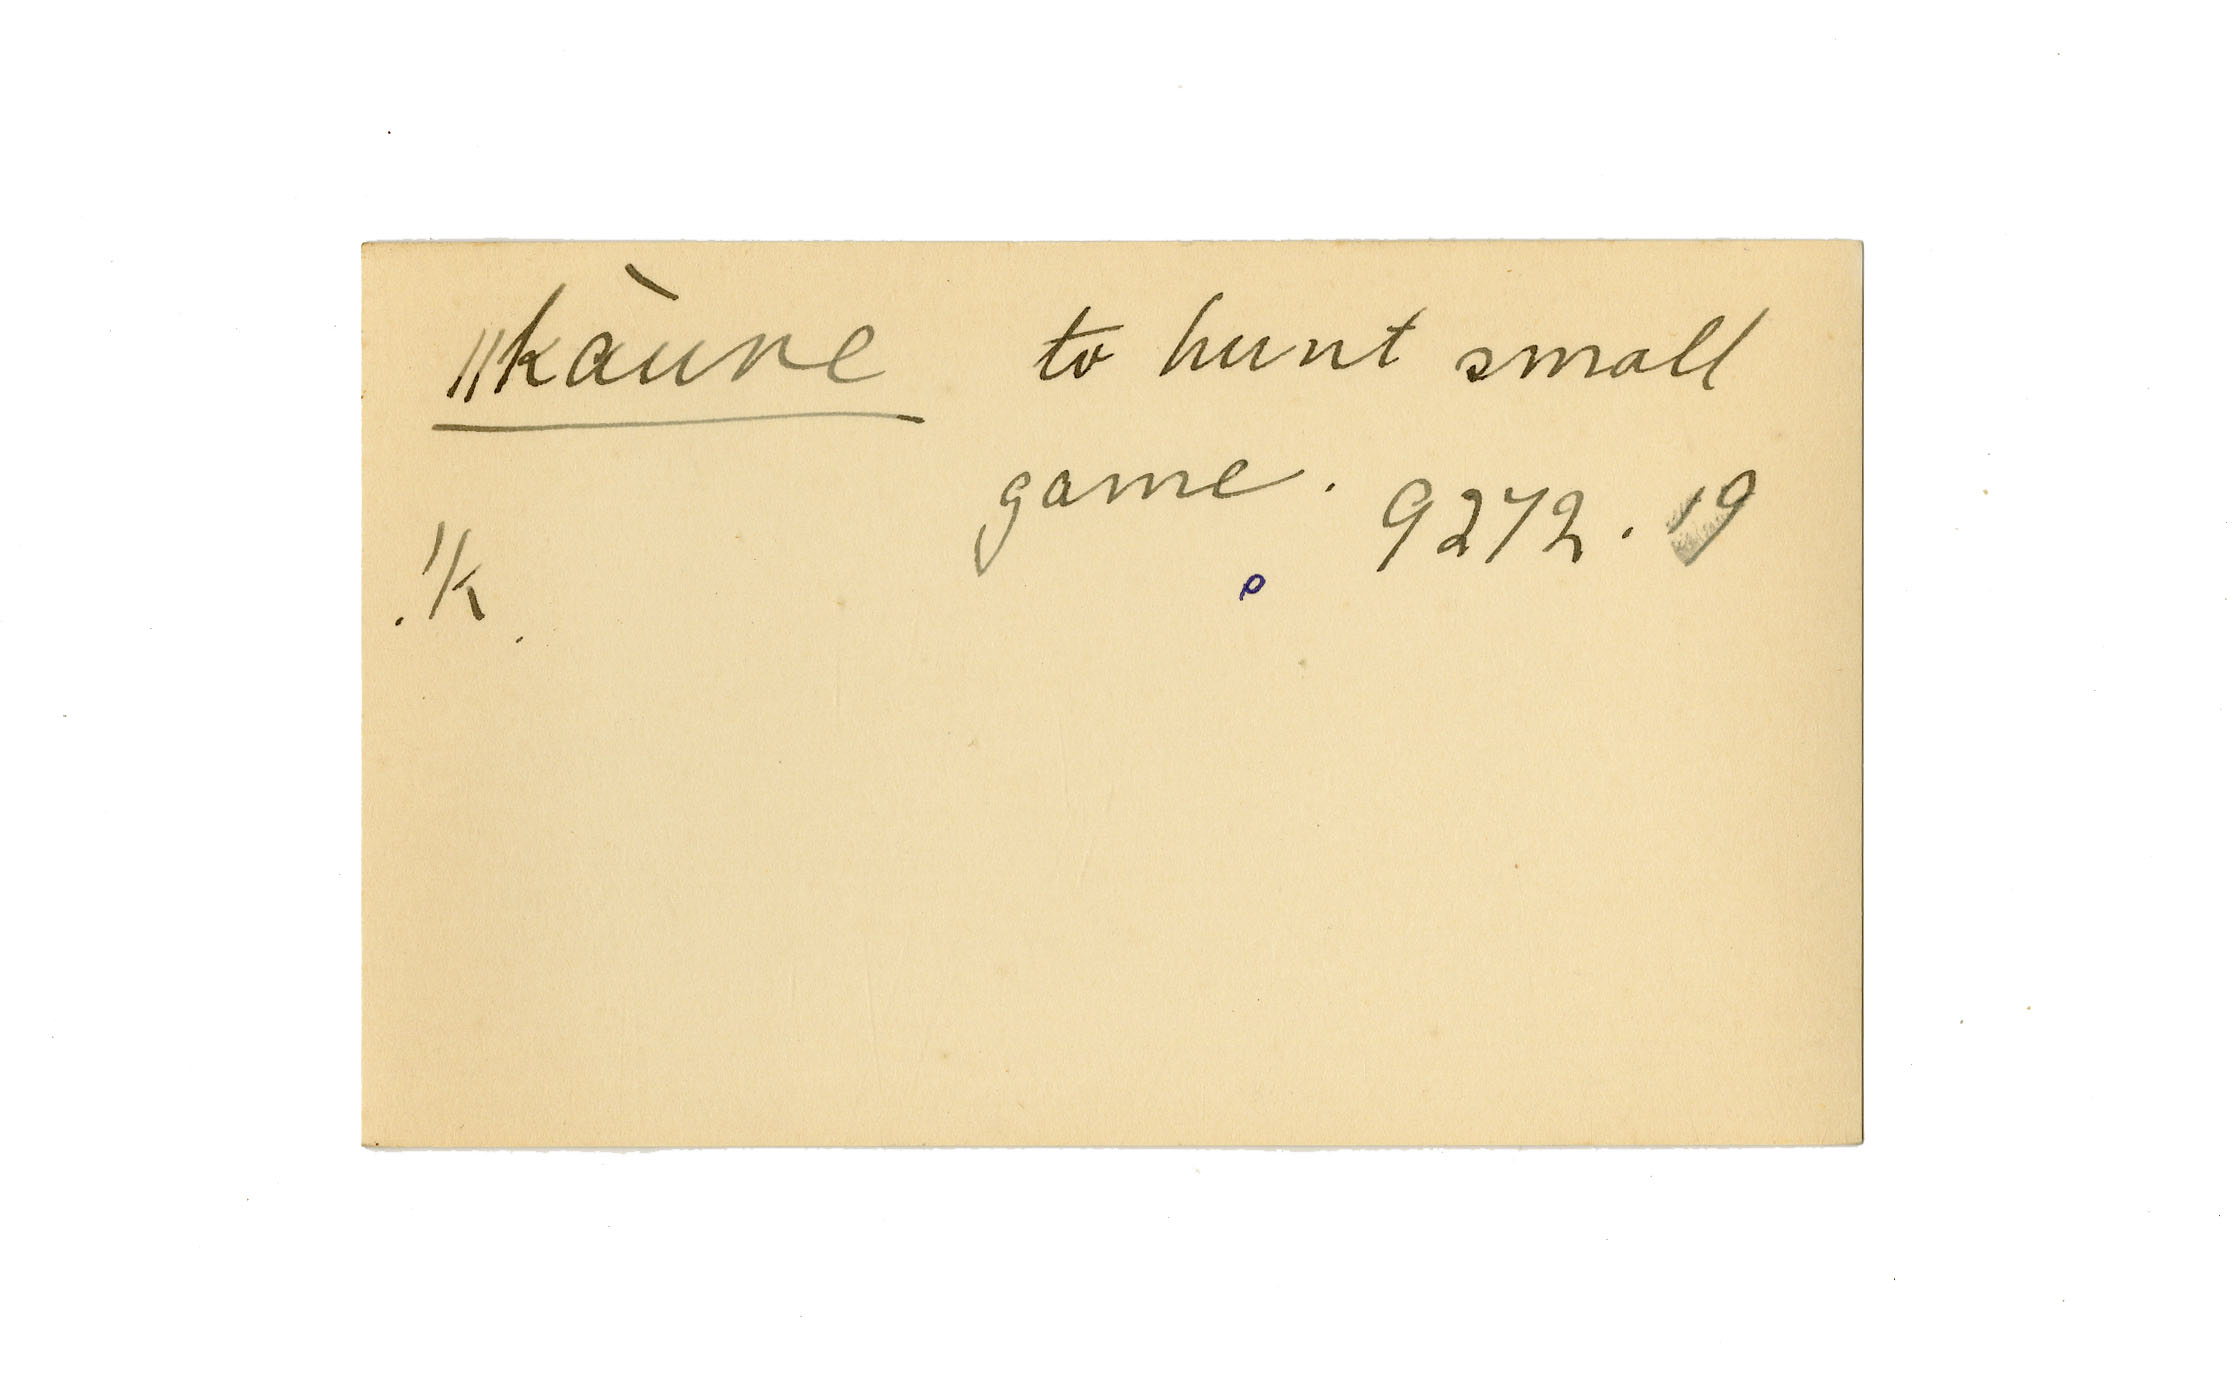 ǁkàune to hunt small
game. 9272.19
.ǀk.